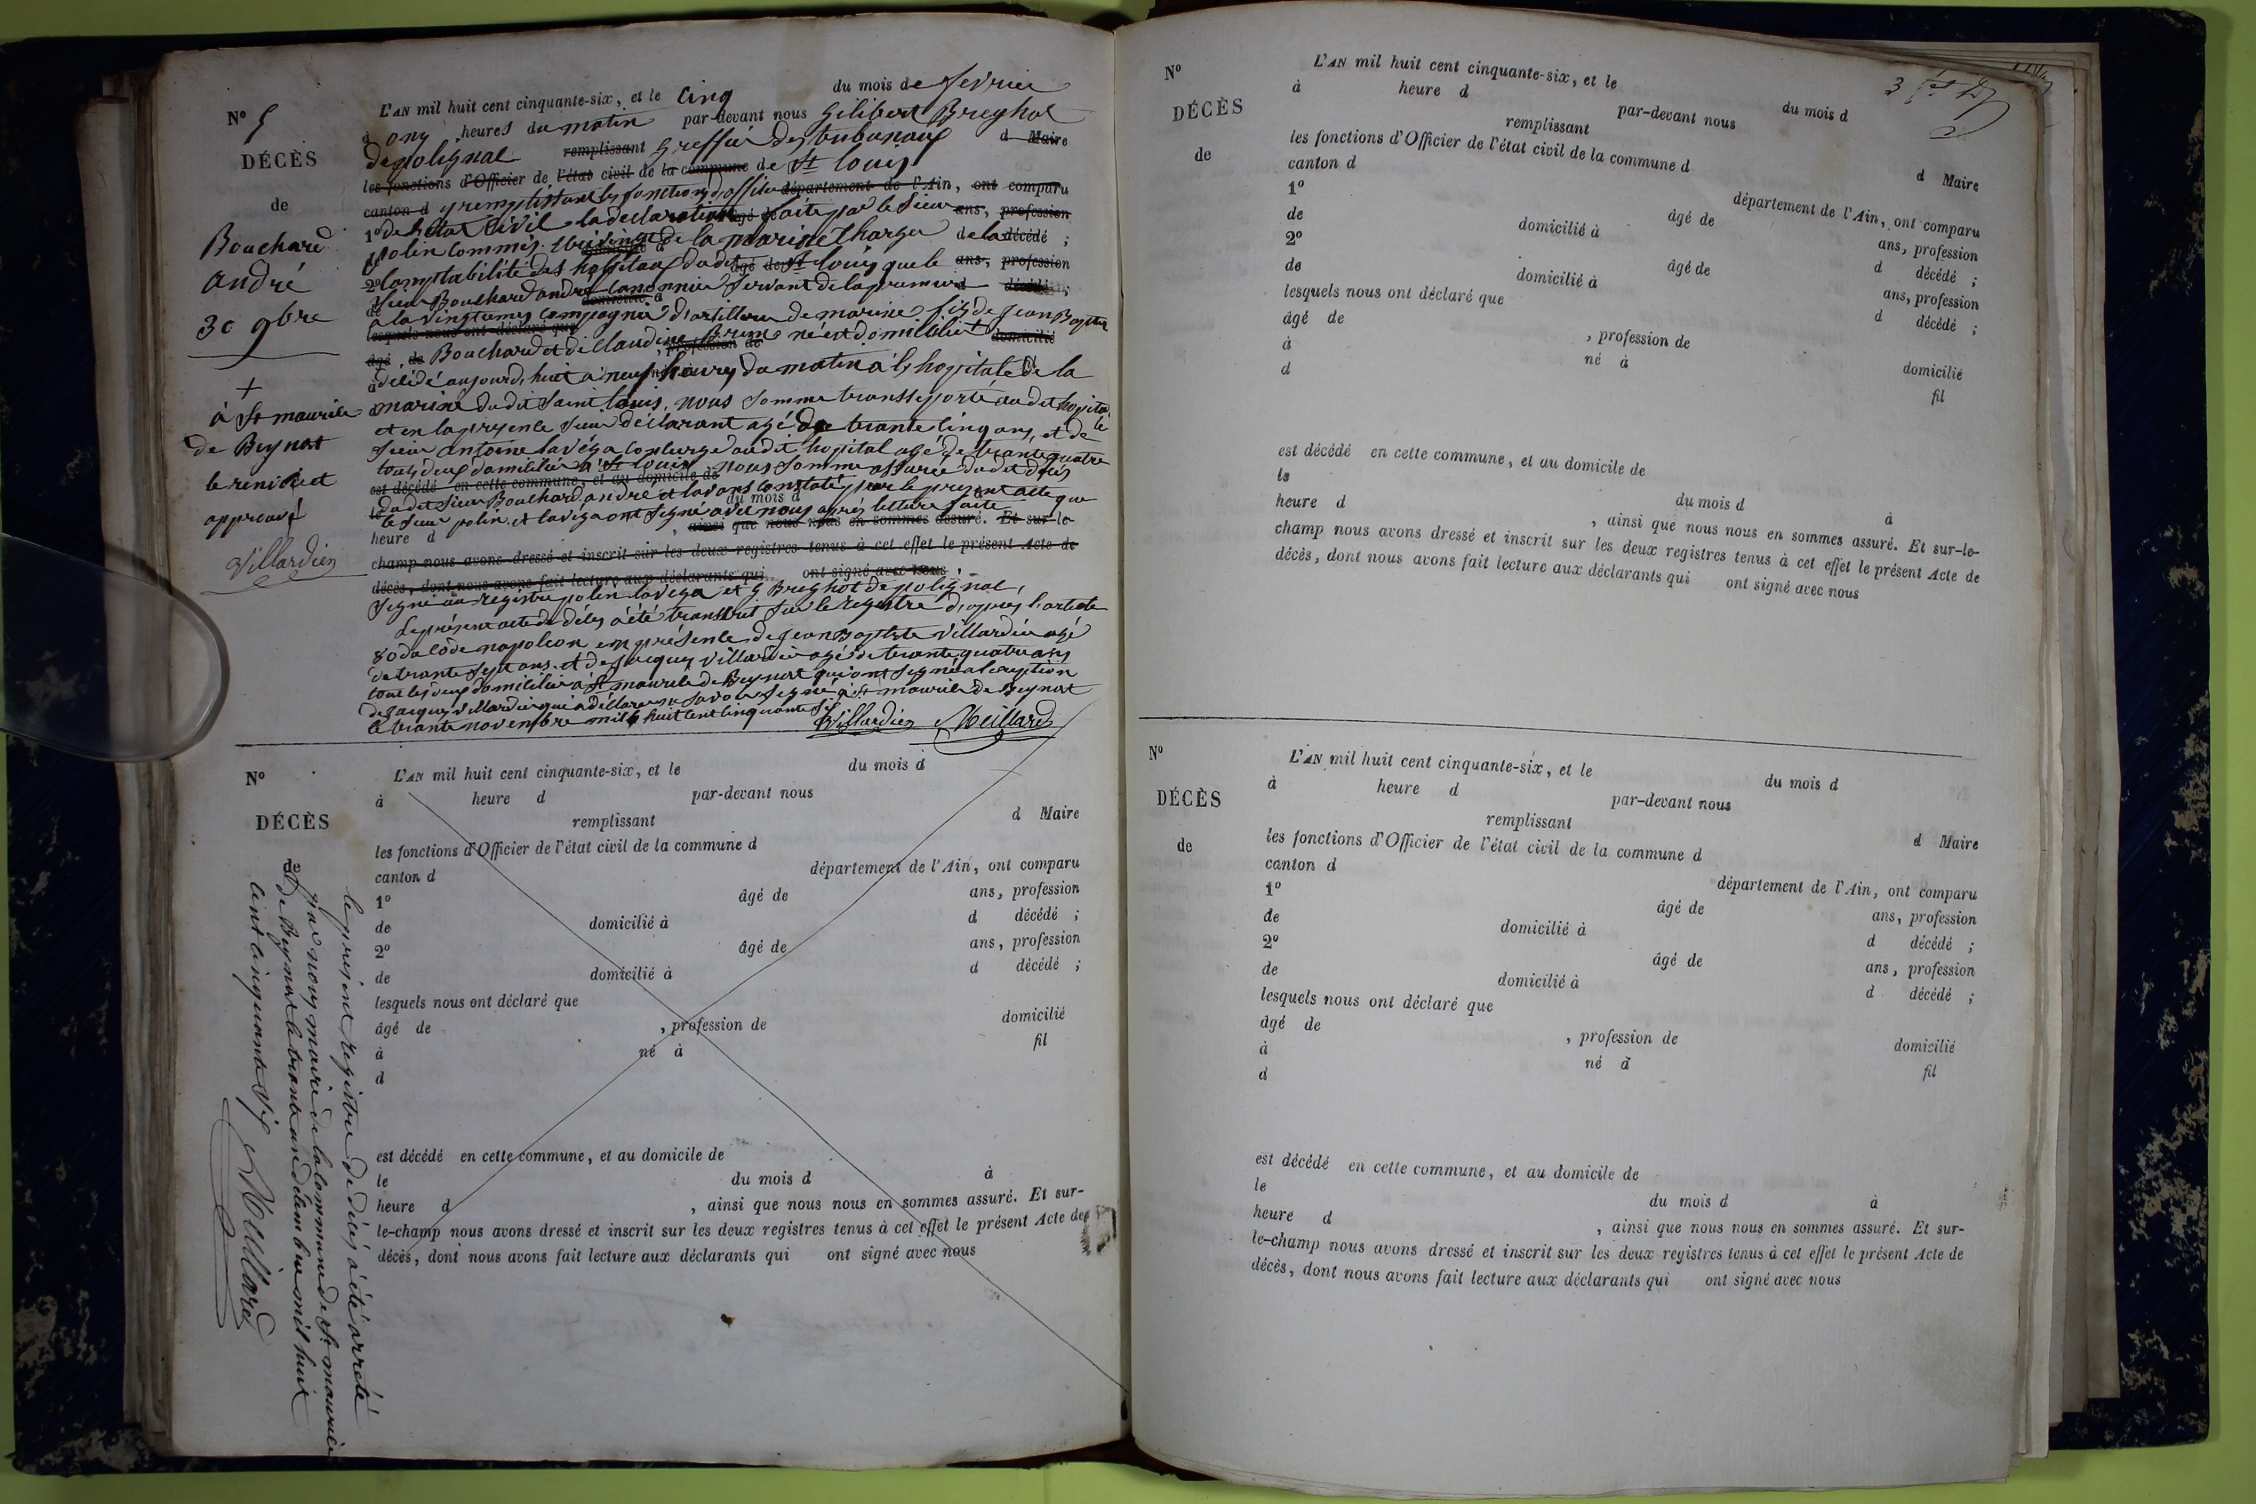 N° 5
DÉCÈS
de
Bouchard
andré
30 9bre
+
à St maurice
de Beynost
le renvoi et
approuvé
Villardier
L'AN mil huit cent cinquante-six, et le cinq du mois de fevrier
à onz heures du matin par-devant nous Gilibert Breghot
de polignac remplissant Greffier des tribunaux d Maire
les fonctions d'Officier de l'état civil de la commune de St louis
canton d remplissant les fonctions d'officier département de l'Ain, ont comparu
1° de l'état Civil la declaration âgé de faite par le Sieur ans, profession
polin Commis de la marine Chargé de la décédé ;
2° Comptabilité des hopitaux dudit âgé de St louis que le ans, profession
Sieur Bouchard andré canonnier Servant de la premiere décédé ;
domicilié à
de
à la vingtieme Compagnie d'artillerie de marine fils de Jean Baptiste
lesquels nous ont déclaré que
âgé de Bouchard et de Claudine profession de né et domicilié domicilié
à décédé aujourd'huit a neuf heures du matin à l'hopitale de la
marine dudit Saint louis, nous Somme transsporté au dit hopital
et en la presence Sieur déclarant agé de trante Cinq ans, et de
Sieur antoine lavéga Concierge audit hopital agé de trante quatre
touts deux domicilié à St louis nous Somme assurée dudit décés
est décédé en cette commune, et au domicile de
le dudit Sieur Bouchard andré et l'avons Constaté par le present acte que
du mois d
le Sieur polin et lavéga ont Signé avec nous après lecture faite
heure d , ainsi que nous nous en sommes assuré. Et sur-le-
champ nous avons dressé et inscrit sur les deux registres tenus à cet effet le présent Acte de
décès, dont nous avons fait lecture aux déclarants qui ont signé avec nous
Signé au registre polin lavéga et G Breghot de polignac,
Le présent acte de décés à été transcrit Sur le registre d'apres l'article
80 du Code napoleon en présence de Jean Baptiste Villardier agé
de trante Sept ans, et de Jacques Villardier agé de trante quatre ans
tout les deux domicilié à St maurice de Beynost qui ont Signé a l'exeption
de Jacques Villardier qui a déclaré ne Savoir Signé à St maurice de Beynost
le trante novembre mil huit cent cinquante Six
Villardier Meillard
N°
DÉCÈS
de
L'AN mil huit cent cinquante-six, et le du mois d
à heure d par-devant nous
remplissant d Maire
les fonctions d'Officier de l'état civil de la commune d
canton d département de l'Ain, ont comparu
1° âgé de ans, profession
de domicilié à d décédé ;
2° âgé de ans, profession
de domicilié à d décédé ;
lesquels nous ont déclaré que
âgé de , profession de domicilié
à né à fil
d
est décédé en cette commune, et au domicile de
le du mois d à
heure d , ainsi que nous nous en sommes assuré. Et sur-
le-champ nous avons dressé et inscrit sur les deux registres tenus à cet effet le présent Acte de
décès, dont nous avons fait lecture aux déclarants qui ont signé avec nous
le present registre de décés a été arreté
par nous maire de la Commune de St maurice
de Beynost le trante un décembre mil huit
cent cinquante Six Meillard
3
N°
DÉCÈS
de
L'AN mil huit cent cinquante-six, et le du mois d
à heure d par-devant nous
remplissant d Maire
les fonctions d'Officier de l'état civil de la commune d
canton d département de l'Ain, ont comparu
1° âgé de ans, profession
de domicilié à d décédé ;
2° âgé de ans, profession
de domicilié à d décédé ;
lesquels nous ont déclaré que
âgé de , profession de domicilié
à né à fil
d
est décédé en cette commune, et au domicile de
le du mois d à
heure d , ainsi que nous nous en sommes assuré. Et sur-le-
champ nous avons dressé et inscrit sur les deux registres tenus à cet effet le présent Acte de
décès, dont nous avons fait lecture aux déclarants qui ont signé avec nous
N°
DÉCÈS
de
L'AN mil huit cent cinquante-six, et le du mois d
à heure d par-devant nous
remplissant d Maire
les fonctions d'Officier de l'état civil de la commune d
canton d département de l'Ain, ont comparu
1° âgé de ans, profession
de domicilié à d décédé ;
2° âgé de ans, profession
de domicilié à d décédé ;
lesquels nous ont déclaré que
âgé de , profession de domicilié
à né à fil
d
est décédé en cette commune, et au domicile de
le du mois d à
heure d , ainsi que nous nous en sommes assuré. Et sur-
le-champ nous avons dressé et inscrit sur les deux registres tenus à cet effet le présent Acte de
décès, dont nous avons fait lecture aux déclarants qui ont signé avec nous